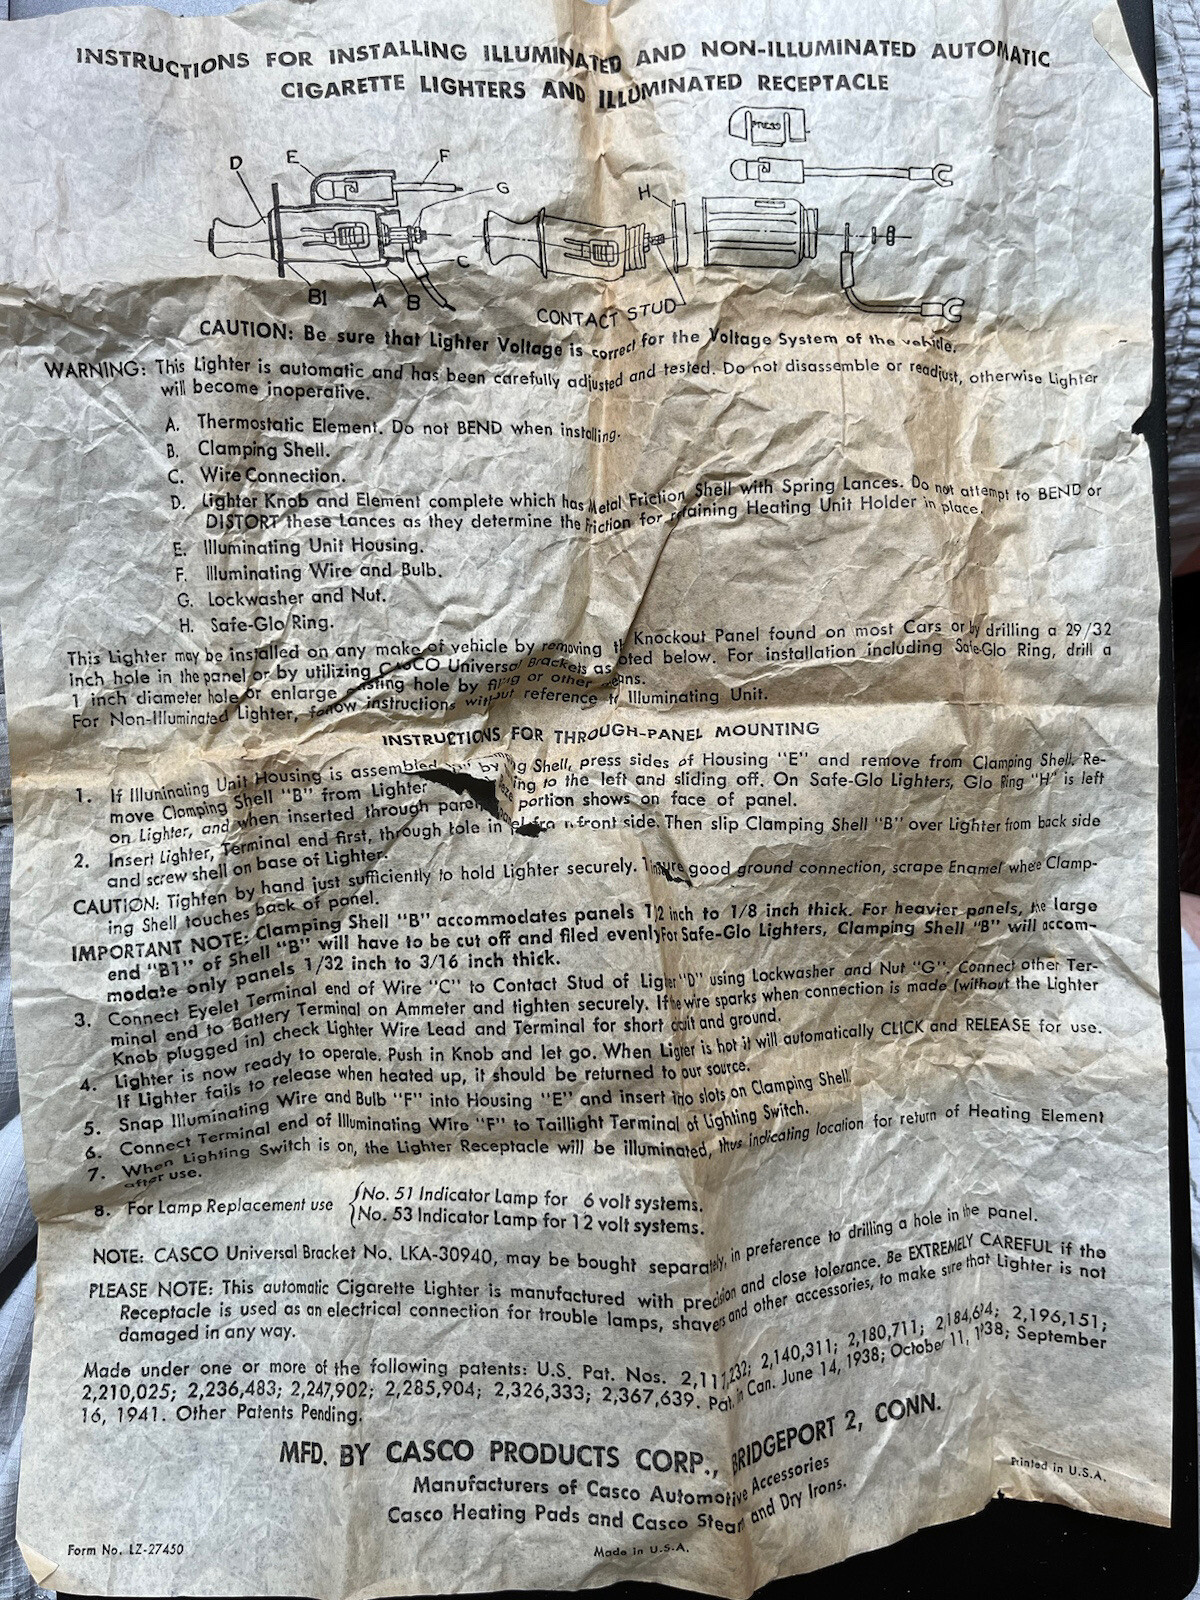 INSTRUCTIONS FOR INSTALLING ILLUMINATED AND NON-ILLUMINATED AUTOMATIC
CIGARETTE LIGHTERS AND ILLUMINATED RECEPTACLE
PRESS
D E F G H
B1 A B C
CONTACT STUD
CAUTION: Be sure that Lighter Voltage is correct for the Voltage System of the vehicle.
WARNING: This Lighter is automatic and has been carefully adjusted and tested. Do not disassemble or readjust, otherwise Lighter
will become inoperative.
A. Thermostatic Element. Do not BEND when installing.
B. Clamping Shell.
C. Wire Connection.
D. Lighter Knob and Element complete which has Metal Friction Shell with Spring Lances. Do not attempt to BEND or
DISTORT these Lances as they determine the Friction for retaining Heating Unit Holder in place.
E. Illuminating Unit Housing.
F. Illuminating Wire and Bulb.
G. Lockwasher and Nut.
H. Safe-Glo Ring.
This Lighter may be installed on any make of vehicle by removing Knockout Panel found on most Cars or by drilling a 29/32
inch hole in the panel or by utilizing CASCO Universal Brackets as noted below. For installation including Safe-Glo Ring, drill a
1 inch diameter hole or enlarge existing hole by filing or other means.
For Non-Illuminated Lighter, follow instructions without reference to Illuminating Unit.
INSTRUCTIONS FOR THROUGH-PANEL MOUNTING
1. If Illuminating Unit Housing is assembled Shell, press sides of Housing "E" and remove from Clamping Shell. Re-
move Clamping Shell "B" from Lighter to the left and sliding off. On Safe-Glo Lighters, Glo Ring "H" is left
on Lighter, and when inserted through portion shows on face of panel.
2. Insert Lighter, Terminal end first, through hole in front side. Then slip Clamping Shell "B" over Lighter from back side
and screw shell on base of Lighter.
CAUTION: Tighten by hand just sufficiently to hold Lighter securely. good ground connection, scrape Enamel where Clamp-
ing Shell touches back of panel.
IMPORTANT NOTE: Clamping Shell "B" accommodates panels inch to 1/8 inch thick. For heavier panels, the large
end "B1" of Shell "B" will have to be cut off and filed evenly For Safe-Glo Lighters, Clamping Shell "B" will accom-
modate only panels 1/32 inch to 3/16 inch thick.
3. Connect Eyelet Terminal end of Wire "C" to Contact Stud of Lighter "D" using Lockwasher and Nut "G". Connect other Ter-
minal end to Battery Terminal on Ammeter and tighten securely. If the wire sparks when connection is made (without the Lighter
Knob plugged in) check Lighter Wire Lead and Terminal for short and ground.
4. Lighter is now ready to operate. Push in Knob and let go. When Lighter is hot it will automatically CLICK and RELEASE for use.
If Lighter fails to release when heated up, it should be returned to our source.
5. Snap Illuminating Wire and Bulb "F" into Housing "E" and insert into slots on Clamping Shell.
6. Connect Terminal end of Illuminating Wire "F" to Taillight Terminal of Lighting Switch.
7. When Lighting Switch is on, the Lighter Receptacle will be illuminated, thus indicating location for return of Heating Element
after use.
8. For Lamp Replacement use { No. 51 Indicator Lamp for 6 volt systems.
No. 53 Indicator Lamp for 12 volt systems.
NOTE: CASCO Universal Bracket No. LKA-30940, may be bought separately, in preference to drilling a hole in the panel.
PLEASE NOTE: This automatic Cigarette Lighter is manufactured with precision and close tolerance. Be EXTREMELY CAREFUL if the
Receptacle is used as an electrical connection for trouble lamps, shavers and other accessories, to make sure that Lighter is not
damaged in any way.
Made under one or more of the following patents: U.S. Pat. Nos. 2,140,311; 2,180,711; 2,196,151;
2,210,025; 2,236,483; 2,247,902; 2,285,904; 2,326,333; 2,367,639. Pat. in Can. June 14, 1938; October 11, 1938; September
16, 1941. Other Patents Pending.
MFD. BY CASCO PRODUCTS CORP., BRIDGEPORT 2, CONN.
Manufacturers of Casco Automotive Accessories
Casco Heating Pads and Casco Steam and Dry Irons.
Printed in U.S.A.
Form No. LZ-27450
Made in U.S.A.